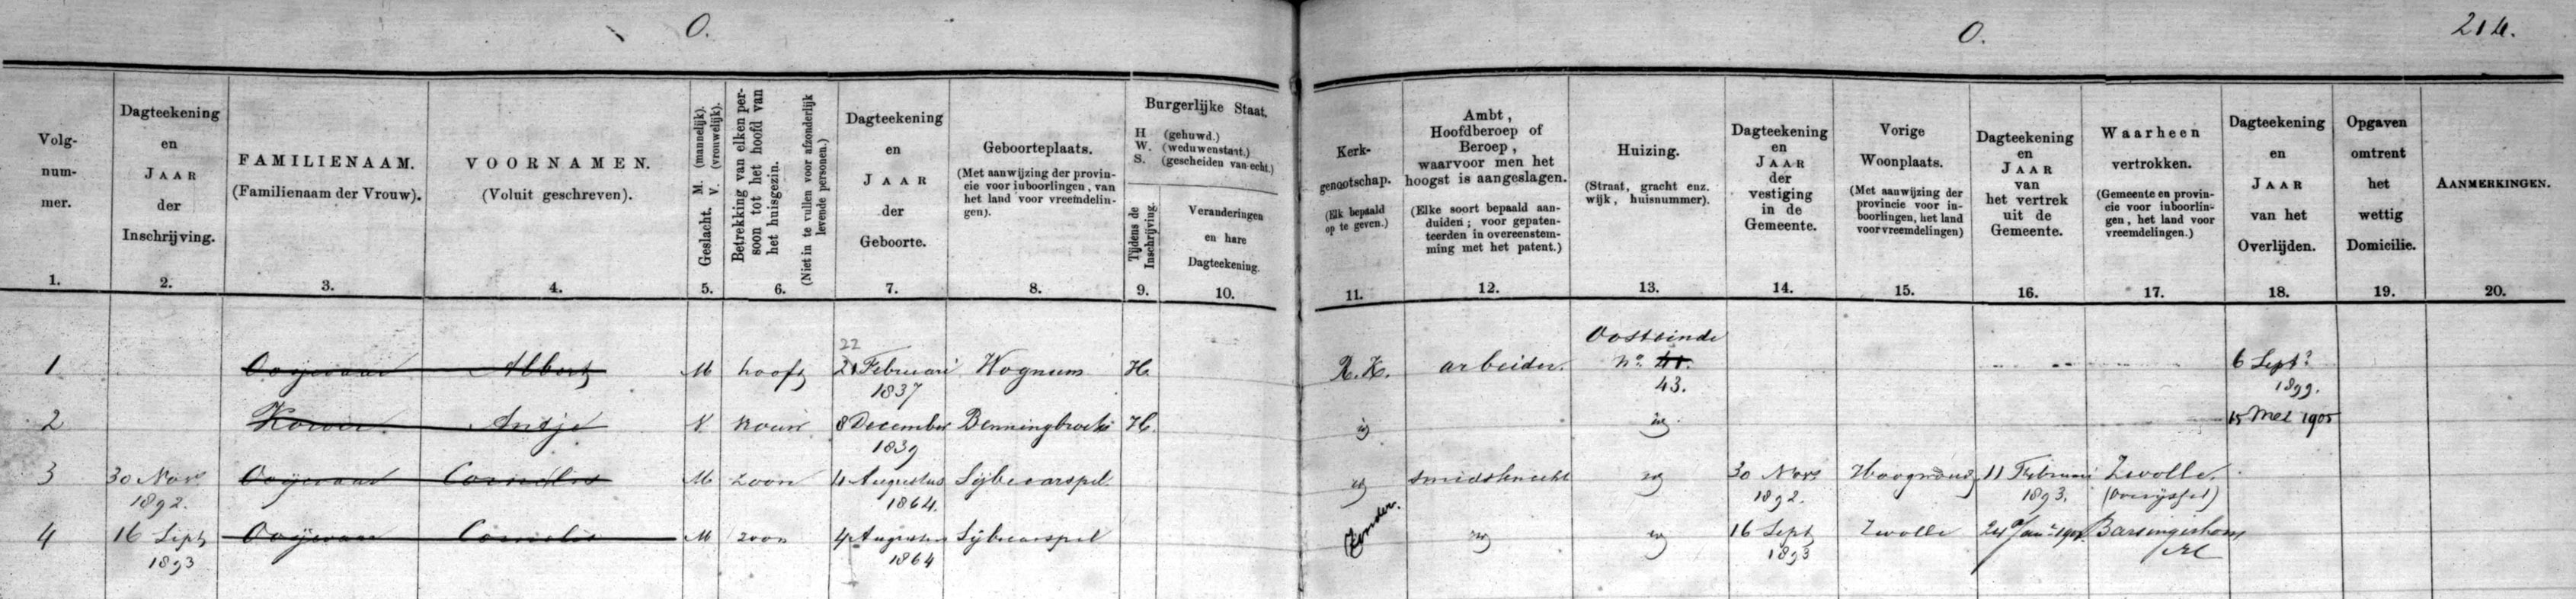 O.
O.
214.
Volg-
num-
mer.
1.
Dagteekening
en
JAAR
der
Inschrijving.
2.
FAMILIENAAM.
(Familienaam der Vrouw).
3.
VOORNAMEN.
(Voluit geschreven).
4.
Geslacht. M. (mannelijk).
V. (vrouwelijk).
5.
Betrekking van elken per-
soon tot het hoofd van
het huisgezin.
(Niet in te vullen voor afzonderlijk
levende personen.)
6.
Dagteekening
en
JAAR
der
Geboorte.
7.
Geboorteplaats.
(Met aanwijzing der provin-
cie voor inboorlingen, van
het land voor vreemdelin-
gen).
8.
Burgerlijke Staat.
H (gehuwd.)
W. (weduwenstaat.)
S. (gescheiden van echt.)
Tijdens de
Inschrijving.
9.
Veranderingen
en hare
Dagteekening.
10.
Kerk-
genootschap.
(Elk bepaald
op te geven.)
11.
Ambt,
Hoofdberoep of
Beroep,
waarvoor men het
hoogst is aangeslagen.
(Elke soort bepaald aan-
duiden; voor gepaten-
teerden in overeenstem-
ming met het patent.)
12.
Huizing.
(Straat, gracht enz.
wijk, huisnummer).
13.
Dagteekening
en
JAAR
der
vestiging
in de
Gemeente.
14.
Vorige
Woonplaats.
(Met aanwijzing der
provincie voor in-
boorlingen, het land
voor vreemdelingen)
15.
Dagteekening
en
JAAR
van
het vertrek
uit de
Gemeente.
16.
Waarheen
vertrokken.
(Gemeente en provin-
cie voor inboorlin-
gen, het land voor
vreemdelingen.)
17.
Dagteekening
en
JAAR
van het
Overlijden.
18.
Opgaven
omtrent
het
wettig
Domicilie.
19.
AANMERKINGEN.
20.
22
Oosteinde
1 Ooijevaar Albert M hoofd 21 Februari Wognum H. R.K. arbeider. No. 41. 6 Sept.
1837 43. 1899.
2 Antje V vrouw 8 December Benningbroek H. id id 15 Mei 1905
1839
3 30 Nov. Ooijevaar Cornelis M zoon 4 Augustus Sijbecarspel. id smidsknecht id 30 Nov. Hoogwoud 11 Februari Zwolle.
1892. 1864. 1892. 1893. (Overijssel)
4 16 Sept Ooijevaar Cornelis M zoon 4 Augustus Sijbecarspel Zonder. id id 16 Sept Zwolle Barsingerhorn
1893 1864 1893